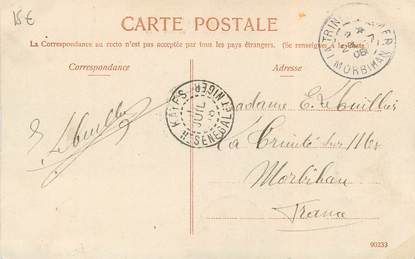 15€
CARTE POSTALE
La Correspondance au recto n'est pas acceptée par tous les pays étrangers. (Se renseignez à la Poste)
Correspondance
Adresse
LA TRINITÉ S MER
MORBIHAN
KAYES
JUIL
Hᵗ SÉNÉGAL ET NIGER
Madame E. Le Buillier
La Trinité sur Mer
Morbihan
France
E. Le Buillier
90233